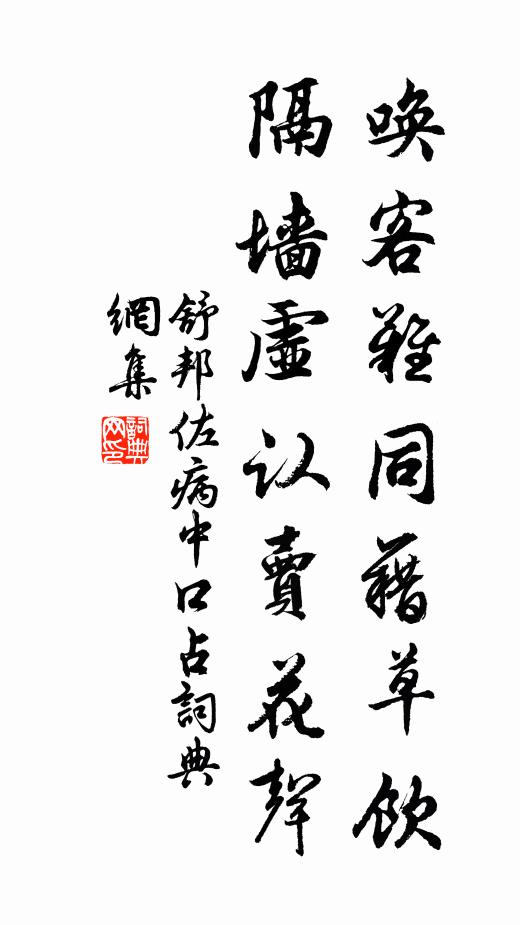 喚客難同藉草飲
隔墻虛认賣花聲
舒邦佐病中口占詞典
網集
詞典网印